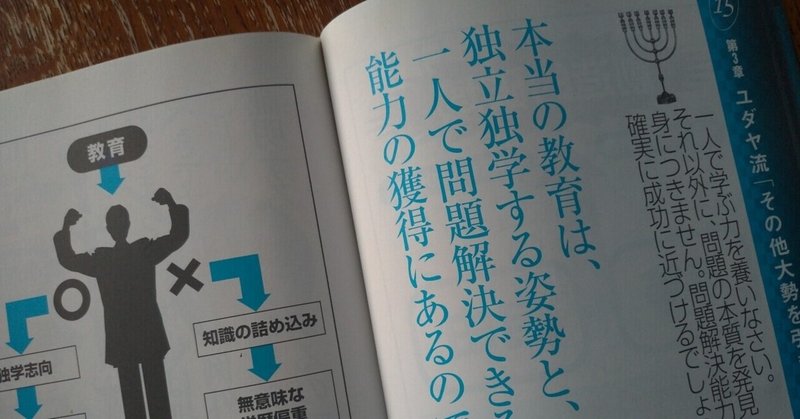 15
第3章 ユダヤ流「その他大勢を
一人で学ぶ力を養いなさい。
それ以外に、問題の本質を発見
身につきません。問題解決能
確実に成功に近づけるでしょ
本当の教育は、
独立独学する姿勢と、
一人で問題解決できる
能力の獲得にあるの
教育
○
×
学志向
知識の詰め込み
無意味な